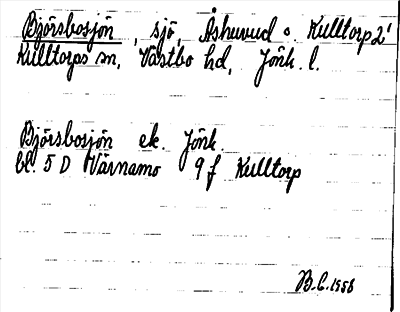 Björsbosjön, sjö, Åshuvud o. Kulltorp 2'
Kulltorps sn, Västbo hd, Jönk. l.
Björsbosjön ek. Jönk.
bl. 5 D Värnamo 9 f Kulltorp
B.C. 1956